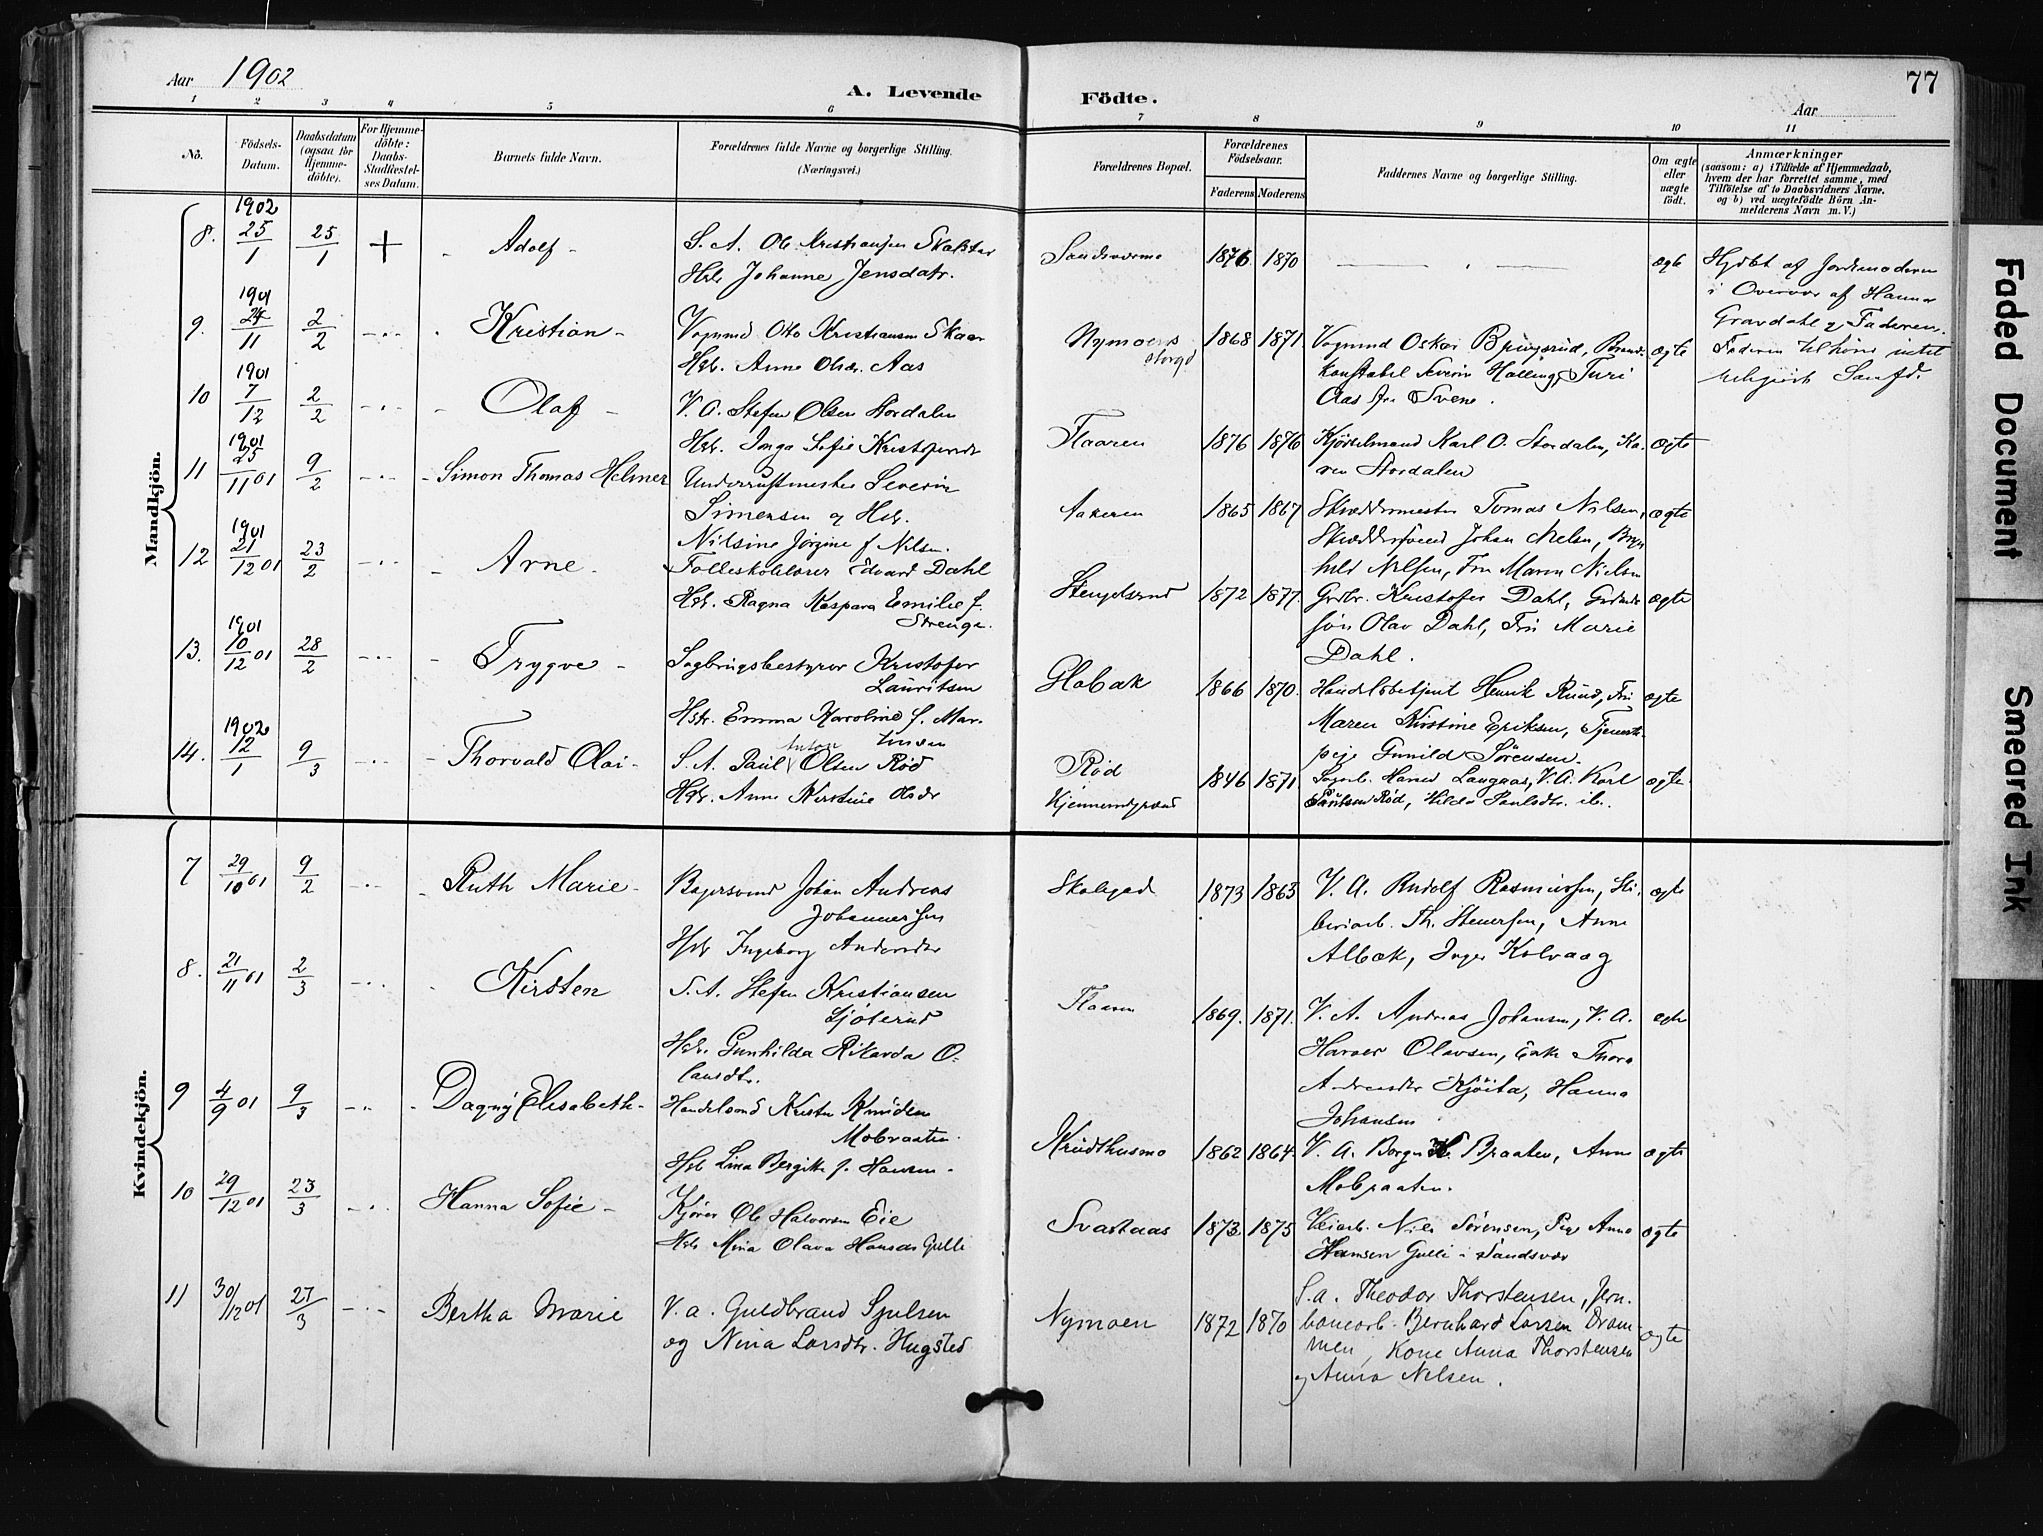 Aar 1902
A. Levende Födte.
77
Aar
1 2 3 4 5 6 7 8 9 10 11
No. Födsels-Datum. Daabsdatum (ogsaa for Hjemme-döbte). For Hjemme-döbte: Daabs-Stadfæstel-ses Datum. Barnets fulde Navn. Forældrenes fulde Navne og borgerlige Stilling. (Næringsvei.)
Forældrenes Bopæl. Forældrenes Födselsaar. Faderens Moderens Faddernes Navne og borgerlige Stilling. Om ægte eller uægte födt.
Anmærkninger
(saasom: a) i Tilfælde af Hjemmedaab,
hvem der har forrettet samme, med
Tilföielse af to Daabsvidners Navne.
og b) ved uægtefödte Börn An-
melderens Navn m. V.)
Mandkjön.
8. 1902 25/1 25/1 + Adolf - S. A. Ole Kristiansen
Hstr Johanne Jensdatr.
1876 1870 ægte Hjdbt af Jordmoderen
i Overvær af Hanna
Gravdahl og Faderen.
Faderen tilhører intet
religiøst Samfd.
9. 1901 24/11 2/2 Kristian - Vognmd Otto Kristiansen Skaar
Hstr. Anne Olsdr. Aas
Nymoens Storgd 1868 1871 Vognmd Oskar
konstabel Severin Halling, Turi
Aas ftr Svene.
ægte
10 1901 7/12 2/2 Olaf - V. A. Stefen Olsen Stordalen
Hstr. Inga Sofie
Flaaren 1876 1876 Kjørselmand Karl O. Stordalen, Ka-
ren Stordalen
ægte
11 1901 25/11 01 9/2 Simon Thomas Helmer Severin
Simensen og Hstr.
Nilsine Jørgine f Nilsen.
Aakeren 1865 1867 Skræddermester Tomas Nilsen,
Skræddersvend Johan Melen,
Nilsen, Fru Maren Nielsen
ægte
12 1901 21/12 01 23/2 Arne - Folleskolelærer Edvard Dahl
Hstr. Ragna Kaspara Emilie f.
Strenge.
Stengelsrud 1872 1877. Grdbr. Kristofer Dahl,
søn Olav Dahl, Fru Marie
Dahl.
ægte
13. 1901 10/12 01 28/2 Trygve - Sagbrugsbestyrer Kristofer
Lauritsen
Hstr. Emma Karoline f. Mar-
tinsen
Glabak 1866 1870. Handelsbetjent Henrik Ruud, Fru
Maren Kirstine Eriksen, Tjeneste-
pige Gunild Sørensen.
ægte
14. 1902 12/1 9/3 Thorvald Olai - S. A. Paul Anton Olsen Rød
Hstr. Anne Kirstine Olsdr
Rød
1846 1871. Hans Langaas, V. A. Karl
Paulsen Rød, Hilda Paulsdtr. ib.
ægte
Kvindekjön.
7 29/10 01 9/2 Ruth Marie - Bagersvend Johan Andreas
Johannessen
Hstr Ingeborg Andersdtr
Skolegad 1873 1863 V. A. Rudolf Rasmussen, Sli-
beriarb. Th. Stenersen, Anne
Albæk, Inger Kolvaag
ægte
8. 21/11 01 2/3 Kirsten S. A. Stefen Kristiansen
Sjølerud
Hstr. Gunhilda Rikarda O-
lausdtr.
Flaaren 1869. 1871. V. A. Andreas Johansen, V. A.
Halvor Olavsen, Enke Thora
Andreasdtr Kjøita, Hanna
Johansen
ægte
9 4/9 01 9/3 Dagny Elisabeth - Handelsmd Kristen Knudsen
Mobraaten.
Hstr Lina Bergitte f. Hansen.
Krudthusmo 1862 1864. V. A. Borger H. Braaten, Anne
Mobraaten.
ægte
10 29/12 01 23/3 Hanna Sofie - Kjører Ole Halvorsen Eie
Hstr Mina Olava Hansdr Gulli
Svartaas 1873 1875 Veiarb. Nils Sørensen, Pige Anna
Hansen Gulli i Sandsvær
ægte
11 30/12 01 27/3 Bertha Marie V. a. Guldbrand Sjulsen
og Nina Larsdtr. Hugsted
Nymoen 1872 1870 S. a. Theodor Thorstensen, Jern-
banearb. Bernhard Larsen Dram-
men, Kone Anna Thorstensen
og Anna Nelsen.
ægte
Faded Document
Smeared Ink